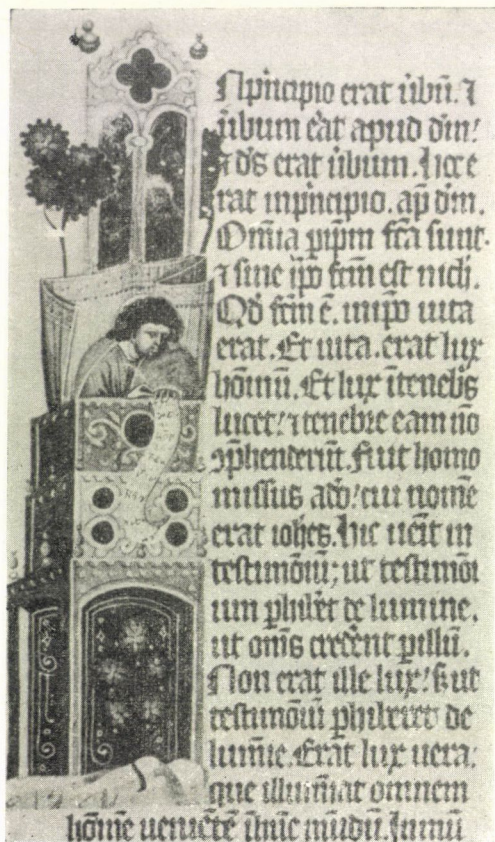 N pͥncipio erat ūbū. ⁊
ūbum eāt apud dm̄:
⁊ dʼs erat ūbum. hͦc e
rat inpͥncipio. ap̄ dm̄.
Om̄ia ꝑip̄m fc̄a sunt.
⁊ sine ip̄o fc̄m est nich̓.
Qd̓ fc̄m ē. inip̄o uita
erat. Et uita. erat lux
hōinū. Et lux ītenebͥs
lucet: ⁊ tenebre eam nō
ↄphenderūt. Fuit homo
missus adō: cui nomē
erat iohes. hic uēit in
testimōiū; ut testimōi
um phiberet de lumine.
ut om̄s credēnt ꝑillū.
Non erat ille lux: s̓ ut
testimōiū phiberet de
lumīe. Erat lux uera:
que illumīat omnem
hōinē ueniētē īhūc mūdū. Inmū